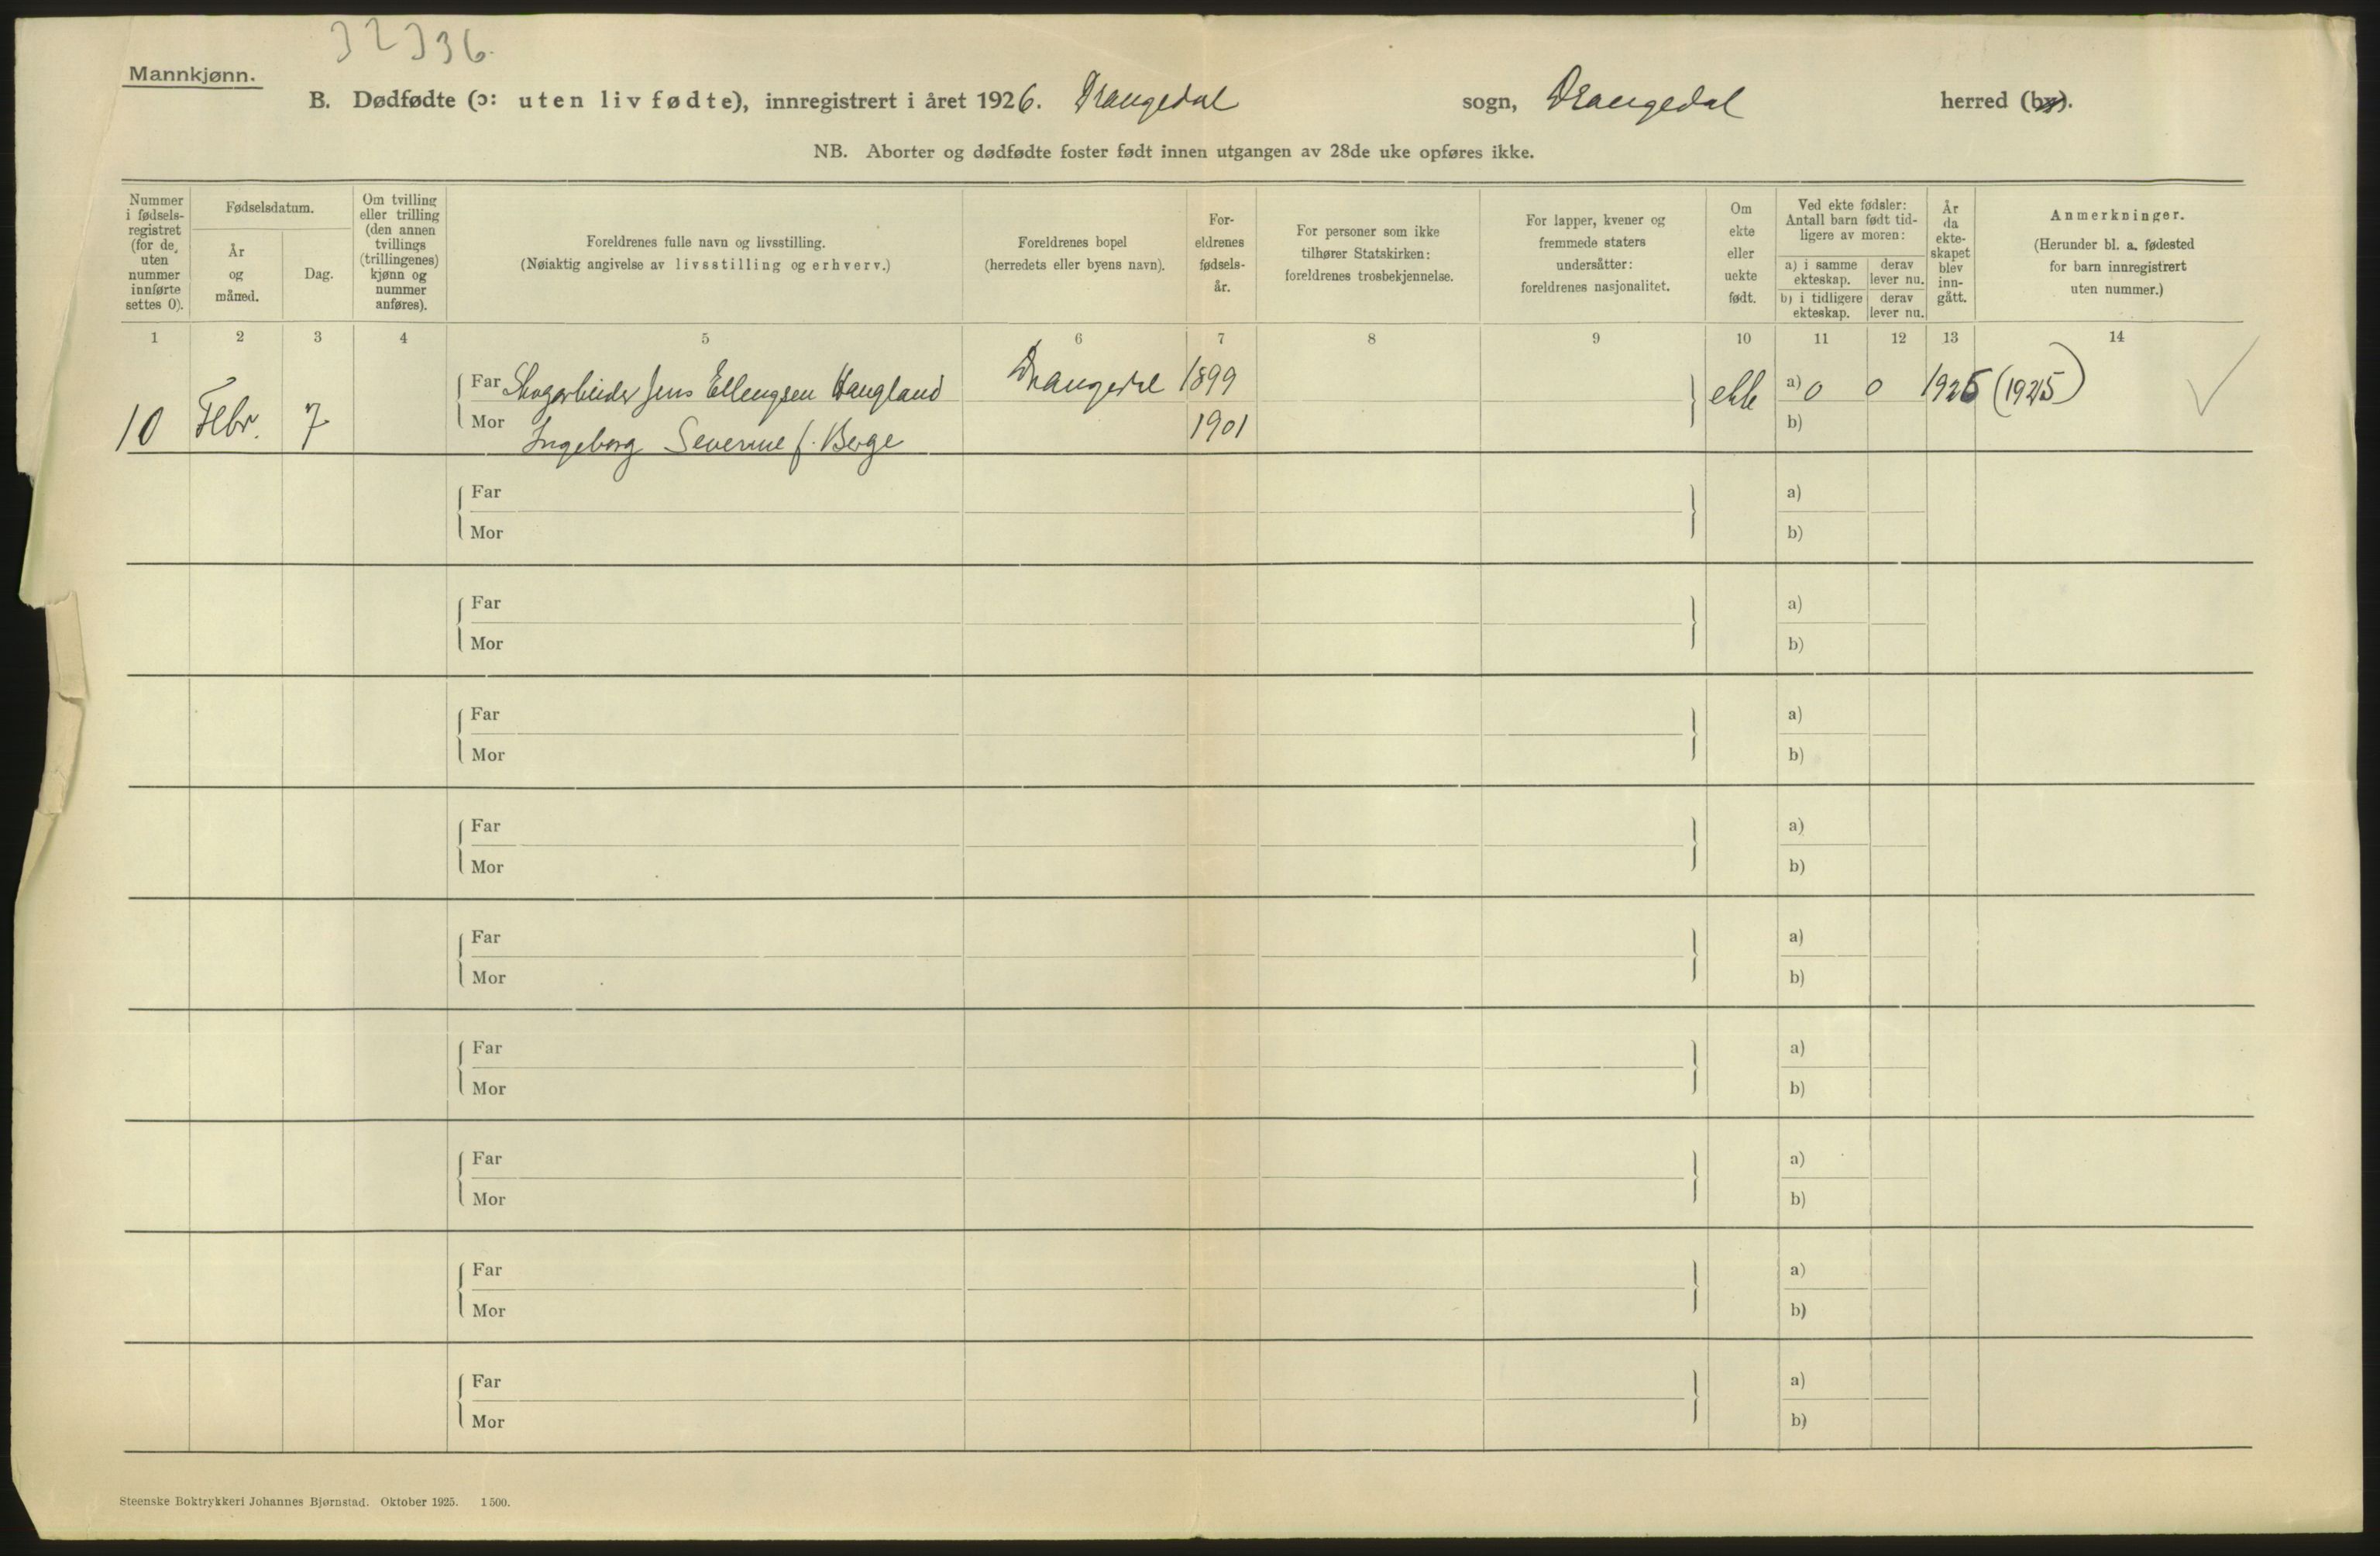 32336.
Mannkjønn.
B. Dødfødte (ɔ: uten liv fødte), innregistrert i året 1926. Drangedal sogn, Drangedal herred (by).
NB. Aborter og dødfødte foster født innen utgangen av 28de uke opføres ikke.
Nummer
i fødsels-
registret
(for de
uten
nummer
innførte
settes 0).
Fødselsdatum.
År
og
måned.
Dag.
Om tvilling
eller trilling
(den annen
tvillings
(trillingenes)
kjønn og
nummer
anføres).
Foreldrenes fulle navn og livsstilling.
(Nøiaktig angivelse av livsstilling og erhverv.)
Foreldrenes bopel
(herredets eller byens navn).
For-
eldrenes
fødsels-
år.
For personer som ikke
tilhører Statskirken:
foreldrenes trosbekjennelse.
For lapper, kvener og
fremmede staters
undersåtter:
foreldrenes nasjonalitet.
Om
ekte
eller
uekte
født.
Ved ekte fødsler:
Antall barn født tid-
ligere av moren:
a) i samme
ekteskap.
derav
lever nu.
b) i tidligere
ekteskap.
derav
lever nu.
År
da
ekte-
skapet
blev
inn-
gått.
Anmerkninger.
(Herunder bl. a. fødested
for barn innregistrert
uten nummer.)
1 2 3 4 5 6 7 8 9 10 11 12 13 14
Far Skogarbeider Jens Ellengsen Haugland Drangedal 1899 ekte a) 0 0 1925 (1925)
10 Febr. 7 Mor Ingeborg Severine f. Berge 1901 b)
Far a)
Mor b)
Far a)
Mor b)
Far a)
Mor b)
Far a)
Mor b)
Far a)
Mor b)
Far a)
Mor b)
Far a)
Mor b)
Far a)
Mor b)
Far a)
Mor b)
Steenske Boktrykkeri Johannes Bjørnstad. Oktober 1925. 1500.